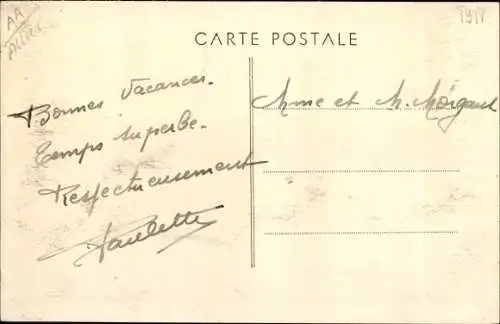 AA
1918
CARTE POSTALE
Bonnes Vacances.
Temps superbe.
Respectueusement
Paulette
Mme et M. Mórgant